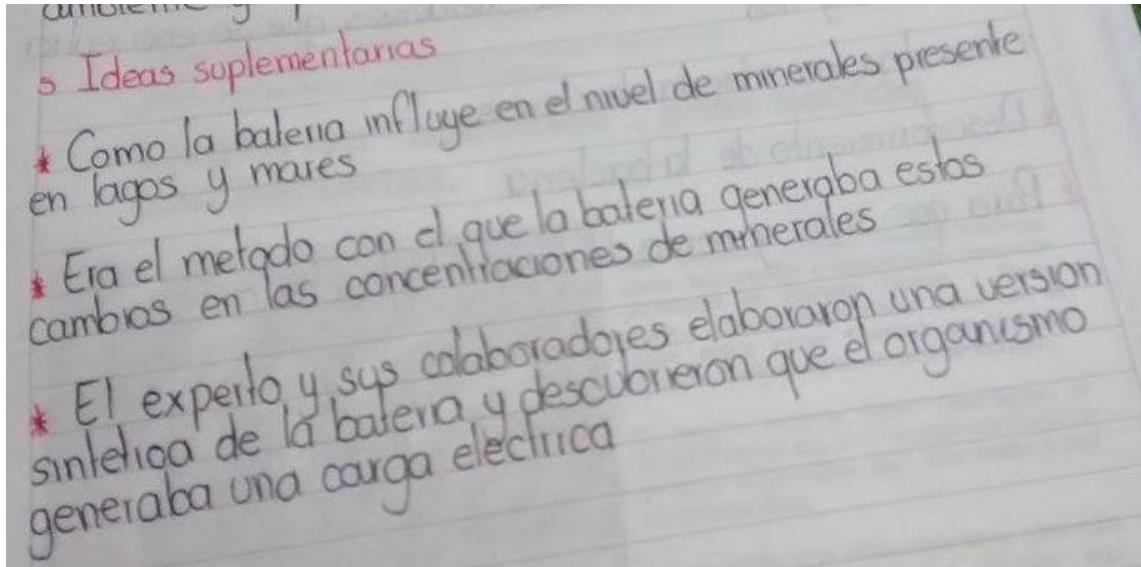 s Ideas suplementarias
* Como la bateria influye en el nivel de minerales presente
en lagos y mares
* Era el metodo con el que la bateria generaba estos
cambios en las concentraciones de minerales
* El experto y sus colaboradores elaboraron una version
sintetica de la bateria y descubrieron que el organismo
generaba una carga electrica